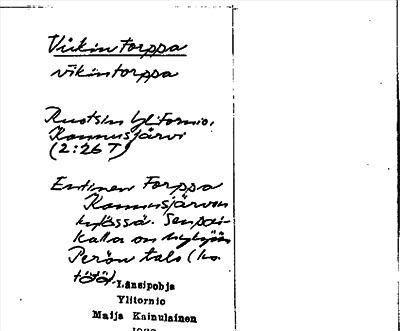 Viikin torppa
vikintorppa
Ruotsin Ylitornio,
Kannusjärvi
(2:26 T)
Entinen torppa
Kannusjärven
kylässä. Sen pai-
kalla on nykyään
Perön talo (ks.
Länsipohja
Ylitornio
Maija Kainulainen